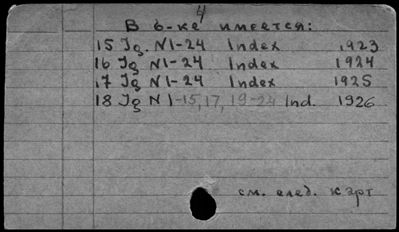 4
В б-ке имеется:
15 Jg. N1-24 Index 1923
16 Jg N1-24 Index 1924
17 Jg N1-24 Index 1925
18 Jg N1-15, 17, 19-24 Ind. 1926
см. след. карт